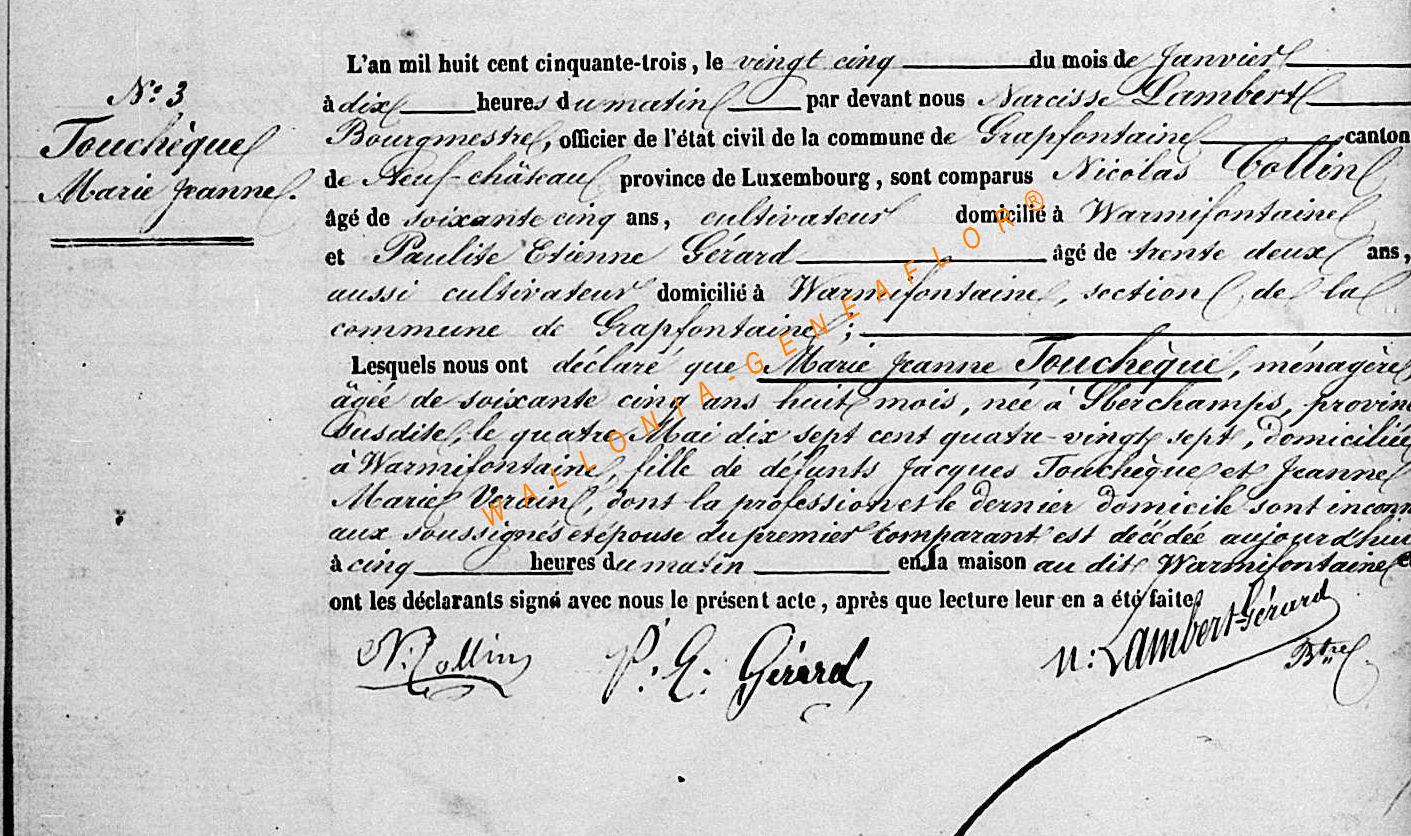 N.° 3
Touchèque
Marie Jeanne.
L'an mil huit cent cinquante-trois, le vingt cinq du mois de Janvier
à dix heures du matin par devant nous Narcisse Lambert
Bourgmestre, officier de l'état civil de la commune de Grapfontaine canton
de Neuf-château province de Luxembourg, sont comparus Nicolas Collin
âgé de soixante cinq ans, cultivateur domicilié à Warmifontaine
et Paulite Etienne Gérard âgé de trente deux ans,
aussi cultivateur domicilié à Warmifontaine, section de la
commune de Grapfontaine;
Lesquels nous ont déclaré que Marie Jeanne Touchèque, ménagère
âgée de soixante cinq ans huit mois, née à Sberchamps, provin
susdite, le quatre Mai dix sept cent quatre-vingt sept, domiciliée
à Warmifontaine, fille de défunts Jacques Touchèque et Jeanne
Marie Verain, dont la profession et le dernier domicile sont inconn
aux soussignés et épouse du premier comparant est décédée aujourd'hui
à cinq heures du matin en sa maison au dit Warmifontaine et
ont les déclarants signé avec nous le présent acte, après que lecture leur en a été faite
N. Collin P. E. Gérard N: Lambert-Gérard
Btre
WALLONIA-GENEAFLOR®